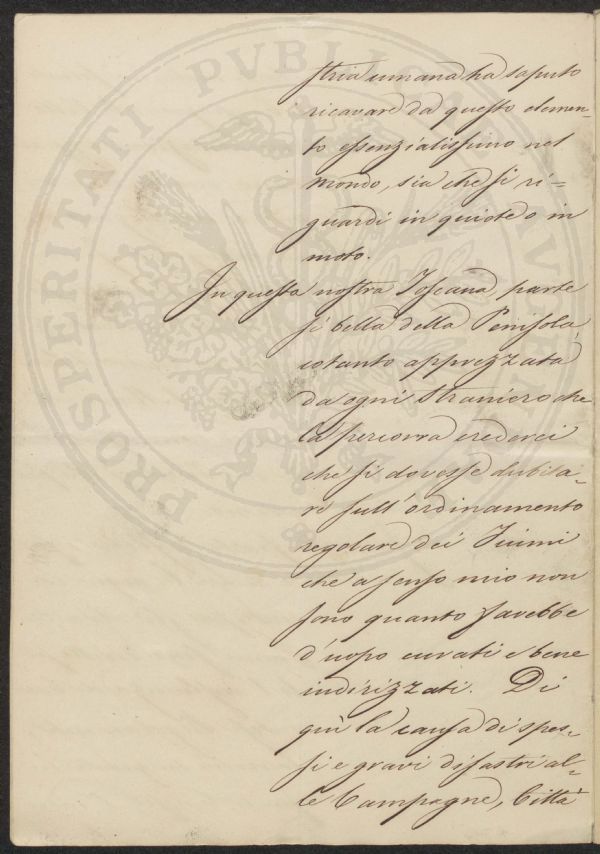 stria umana ha saputo
ricavare da questo elemen-
to essenzialissimo nel
mondo, sia che si ri=
guardi in quiete o in
moto.
In questa nostra Toscana, parte
si bella della Penisola,
cotanto apprezzata
da ogni Straniero che
la percorra crederei
che si dovesse dubita-
re sull'ordinamento
regolare dei Fiumi
che a senso mio non
sono quanto sarebbe
d'uopo curati e bene
indirizzati. Di
quì la causa di spes-
si e gravi disastri al-
le Campagne, Città
PROSPERITATI PVBLICAE